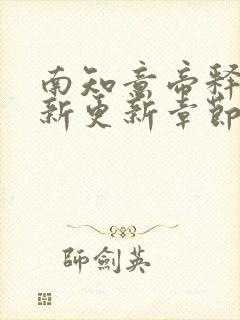 南知意帝释
新更新章节
師劍英